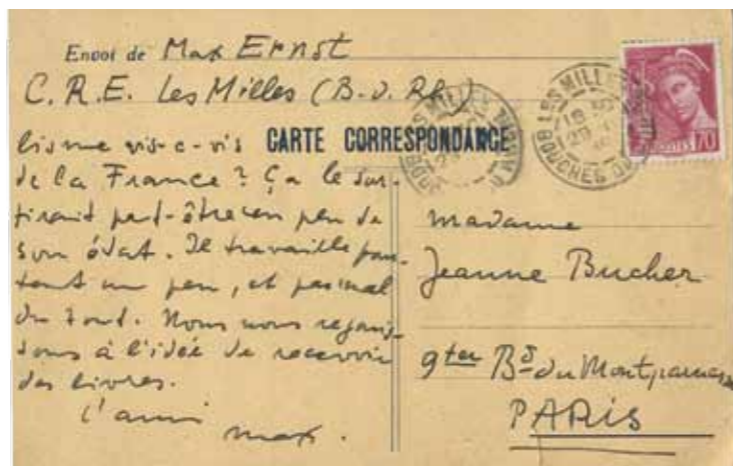 Envoi de Max Ernst
C.R.E. Les Milles (B.d.Rh.)
CARTE CORRESPONDANCE
lisme vis-a-vis
de la France? Ça le sor-
tirait peut-être un peu de
son état. Il travaille pour-
tant un peu, et pas mal
du tout. Nous nous rejouis-
sons à l'idée de recevoir
des livres.
l'ami
max.
LES MILLES
BOUCHES DU
70
madame
Jeanne Bucher
9ter Bd du Montparnasse
PARIS